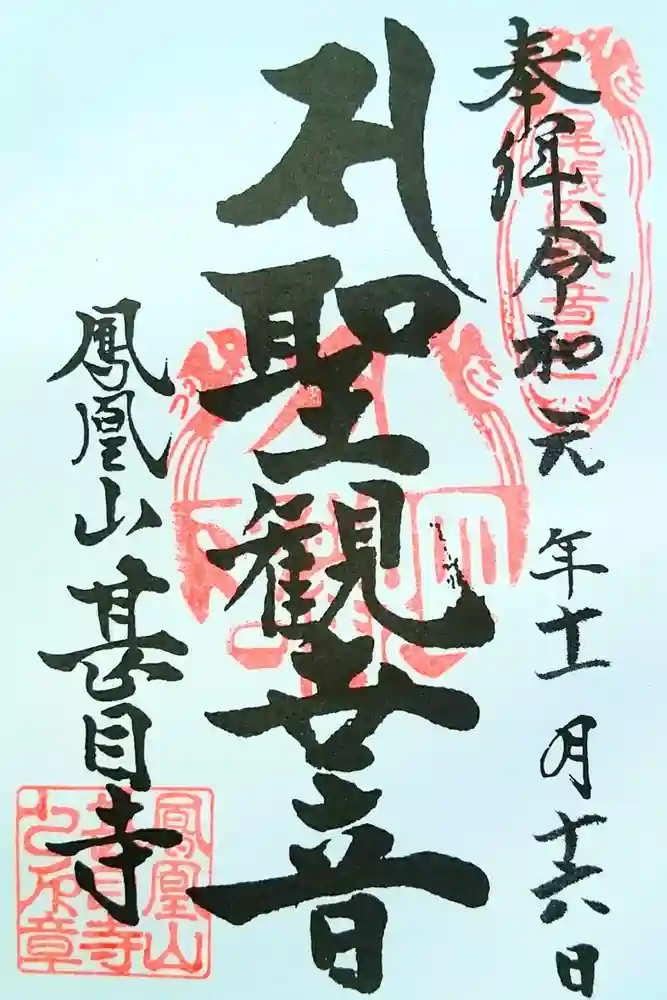 奉拝、令和元年十一月十六日
聖観世音
鳳凰山甚目寺
尾張四観音
鳳凰山
甚目寺
之印章